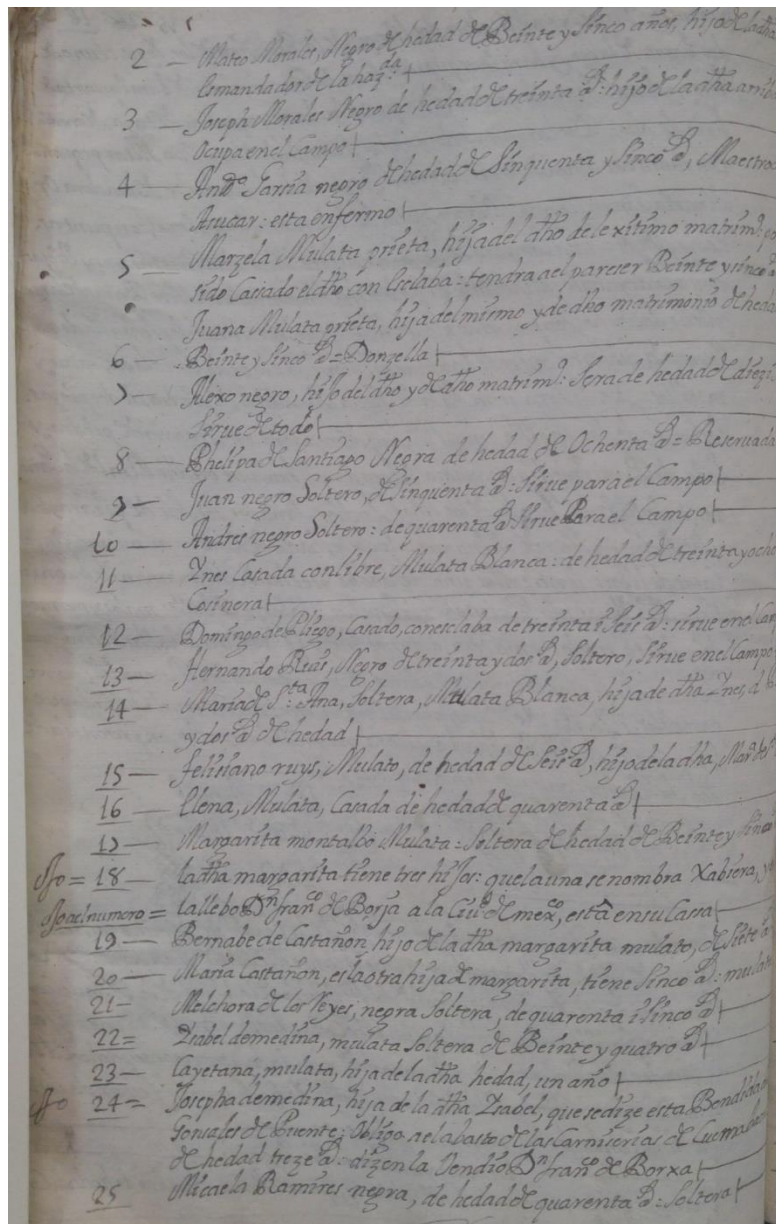 2 — Mateo Morales, Negro de hedad de Beinte y Sinco años, hijo de la dha
Esmandador de la hazda
3 — Joseph Morales Negro de hedad de treinta as: hijo de la dha arriba
Ocupa en el Campo
4 — Anto Garsia negro de hedad de Sinquenta y Sinco as, Maestro
Asucar: esta enfermo
5 — Marzela Mulata prieta, hija del dho de lexitimo matrimo: po
sido Casado el dho con Esclaba: tendra a el pareser Beinte y sinco as
Juana Mulata prieta, hija del mismo y de dho matrimonio de heda
6 — Beinte y Sinco as = Donzella
7 — Alexo negro, hijo del dho y de dho matrimo: Sera de hedad de diezi
Sirue de todo
8 — Phelipa de Santiago Negra de hedad de Ochenta as = Reservada
9 — Juan negro Soltero, de Sinquenta as: Sirue para el Campo
10 — Andres negro Soltero: de quarenta as Sirue Para el Campo
11 — Ynes Casada con libre, Mulata Blanca: de hedad de treinta y ocho
Cosinera
12 — Domingo de Pliego, Casado, con esclaba de treinta i Seis as: sirue en el Cam
13 — Hernando Reas, Negro de treinta y dos as, Soltero, Sirue en el Campo
14 — Maria de Sta Ana, Soltera, Mulata Blanca, hija de dha Ynes, d
y dos as de hedad
15 — felisiano ruys, Mulato, de hedad de Seis as, hijo de la dha, Mara de S
16 — Elena, Mulata, Casada de hedad de quarenta as
17 — Margarita montalbo Mulata: Soltera de hedad de Beinte y Sinco
18 — la dha margarita tiene tres hijos: que la una se nombra Xabiera, y
ojo al numero = la llebo Dn franco de Borja a la Ciud de mexco, está en su Cassa
19 — Bernabe de Castañon hijo de la dha margarita mulato, de Siete as
20 — Maria Castañon, es la otra hija de margarita, tiene Sinco as: mulata
21 — Melchora de los Reyes, negra Soltera, de quarenta i Sinco as
22 = Ysabel de medina, mulata Soltera de Beinte y quatro as
23 — Cayetana, mulata, hija de la dha hedad, un año
24 = Josepha de medina, hija de la dha Ysabel, que se dize esta Bendida
Gonsales de Puente, Obligo, a el abasto de las Carniserias de Cuernaba
de hedad treze as: dizen la Vendio Dn franco de Borxa
25 Micaela Ramires negra, de hedad de quarenta as: Soltera